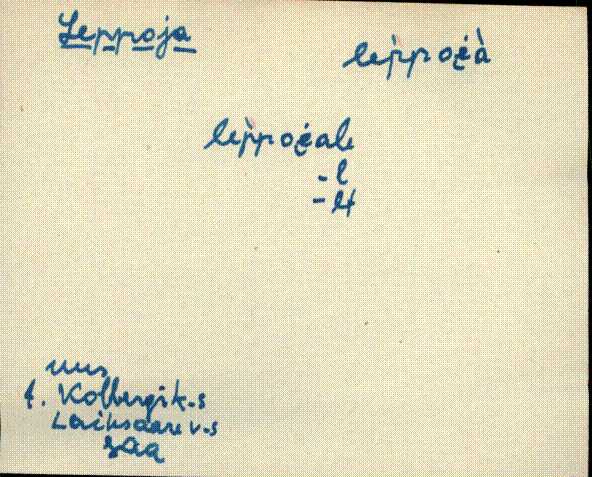 Leppoja
lep̀poi̯à
lep̀poi̯ale
-l
-lt
uus
t. Kolbergi k-s
Laiksaare v-s
Saa